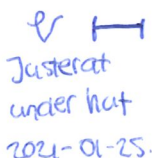 Justerat
under hat
2021-01-25.